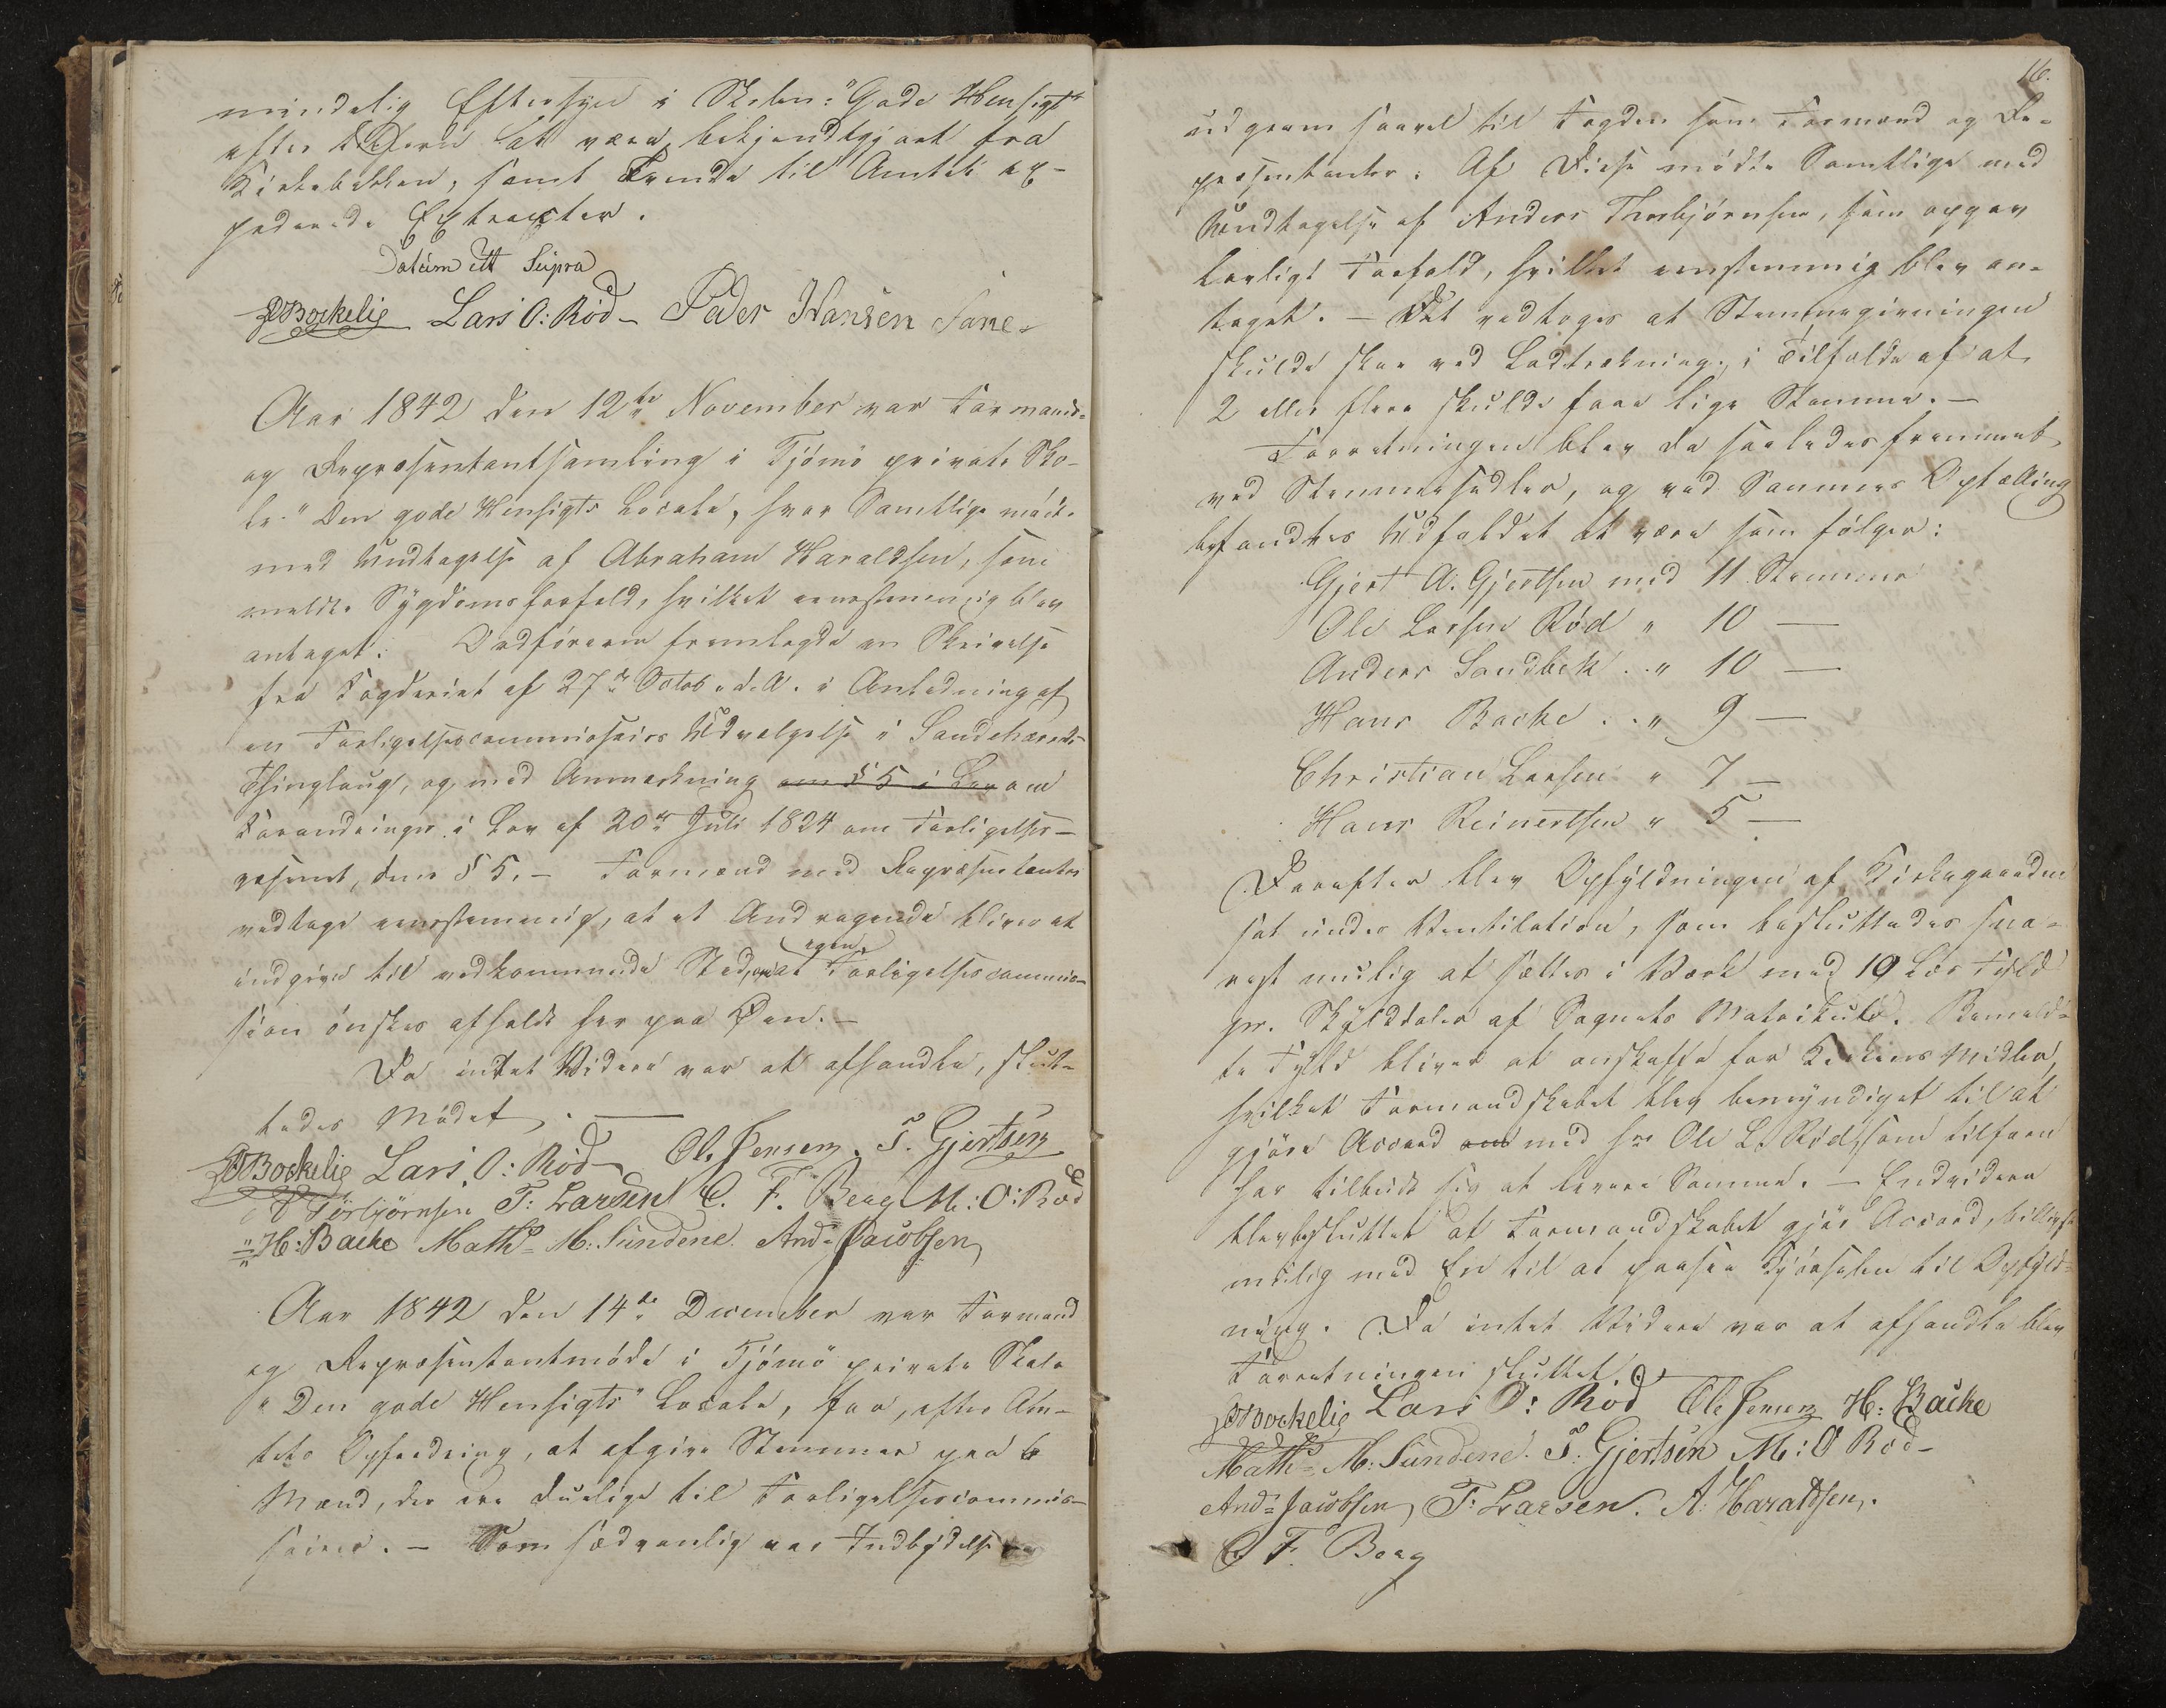 mindelig Eftersyn i Skolen: "Gode Hensigt"
efter derom at være bekjendtgjort fra
Kirkebakken, samt tvende til Amtet ex-
pederede Extracter.
Datum ut Supra
Bockelie Lars O: Rød_ Peder Hansen
Aar 1842 den 12te November var Formands-
og Repræsentantsamling i Tjömö private Sko-
le "Den gode Hensigts Locale, hvor Samtlige mödte
med Undtagelse af Abraham Haraldsen, som
meldte Sygdomsforfald, hvilket eenstemmig blev
antaget. Ordföreren fremlagde en Skrivelse
fra Fogderiet af 27de Octob. d. A. i Anledning af
en Forligelsescommissairs Udvælgelse i Sandeherreds
Thinglaug, og med Anmærkning om § 5 i Lov om
Forandringer i Lov af 20de Juli 1824 om Forligelses-
væsenet, dens § 5. – Formænd med Repræsentanter
vedtage eenstemmig, at et Andragende bliver at
indgive til vedkommende Sted, at egen Forligelsescommis-
sion önskes afholdt her paa Öen. –
Da intet Videre var at afhandle, slut-
tedes Mödet. —
Bockelie Lars O: Rød_ Ole Jensen. T. Gjertsen
A Törbjörnsen T: Larsen C. F. Berg M: O: Rød
H: Backe Maths M: Sundene Ands Jacobsen
Aar 1842 den 14de December var Formand
og Repræsentantmöde i Tjömö private Skole
"Den gode Hensigts" Locale, for, efter Am-
tets Opfordring, at afgive Stemmer paa 6
Mænd, der ere duelige til Forligelsescommis-
sairer. – Som sædvanlig var Indbydelse
16.
udgaaen saavel til Fogden som Formænd og Re-
præsentanter. Af Disse mödte Samtlige med
Undtagelse af Anders Thorbjørnsen, som opgav
lovligt Forfald, hvilket eenstemmig blev an-
taget. – Det vedtoges at Stemmegivningen
skulde skee ved Lodtrækning, i Tilfælde af at
2 eller flere skulde faae lige Stemme. –
Forretningen blev da saaledes fremmet
ved Stemmesedler, og ved Sammes Optælling
befandtes Udfaldet at være som fölger:
Gjert A. Gjertsen med 11 Stemmer
Ole Larsen Rød " 10 —
Anders Sandbek .. " 10 —
Hans Backe .. " 9 —
Christian Larsen " 7 —
Hans Reinertsen " 5 —
Derefter blev Opfyldningen af Kirkegaarden
sat under Ventilation, som besluttedes sna-
rest muelig at sættes i Værk med 10 Læs Fyld
pr. Skylddaler af Sognets Matrikul. Bemeld-
te Fyld bliver at anskaffe for Kirkens Midler,
hvilket Formandskabet blev bemyndiget til at
gjöre Accord om med Hr Ole L. Rød, som tilforn
har tilbudt sig at levere Samme. – Endvidere
blev besluttet at Formandskabet gjör Accord, billigst
muelig med En til at paasee Kjörselen til Opfyld-
ning. Da intet Videre var at afhandle blev
Forretningen sluttet.
Bockelie Lars O: Rød Ole Jensen H: Backe
Maths M: Sundene. T. Gjertsen M: O Rød_
Ands Jacobsen T: Larsen. A. Haraldsen.
C. F. Berg